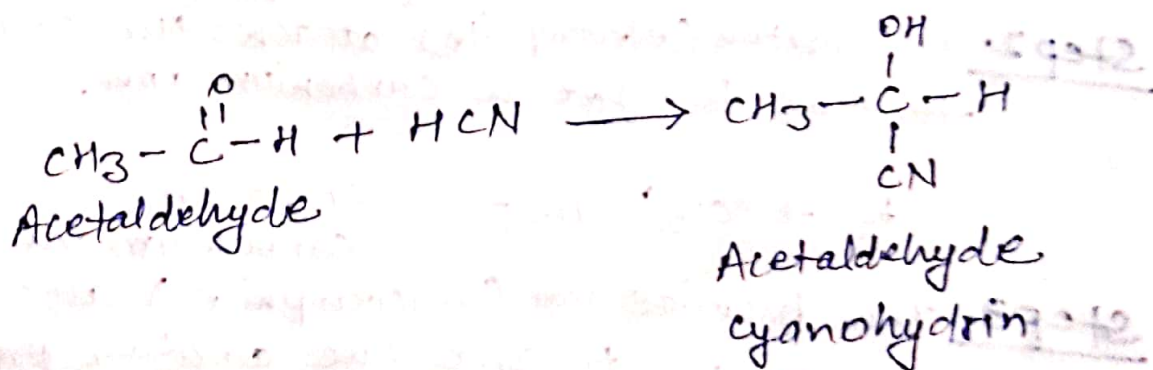 O OH
|| |
CH3 - C - H + HCN → CH3 - C - H
|
CN
Acetaldehyde
Acetaldehyde
cyanohydrin